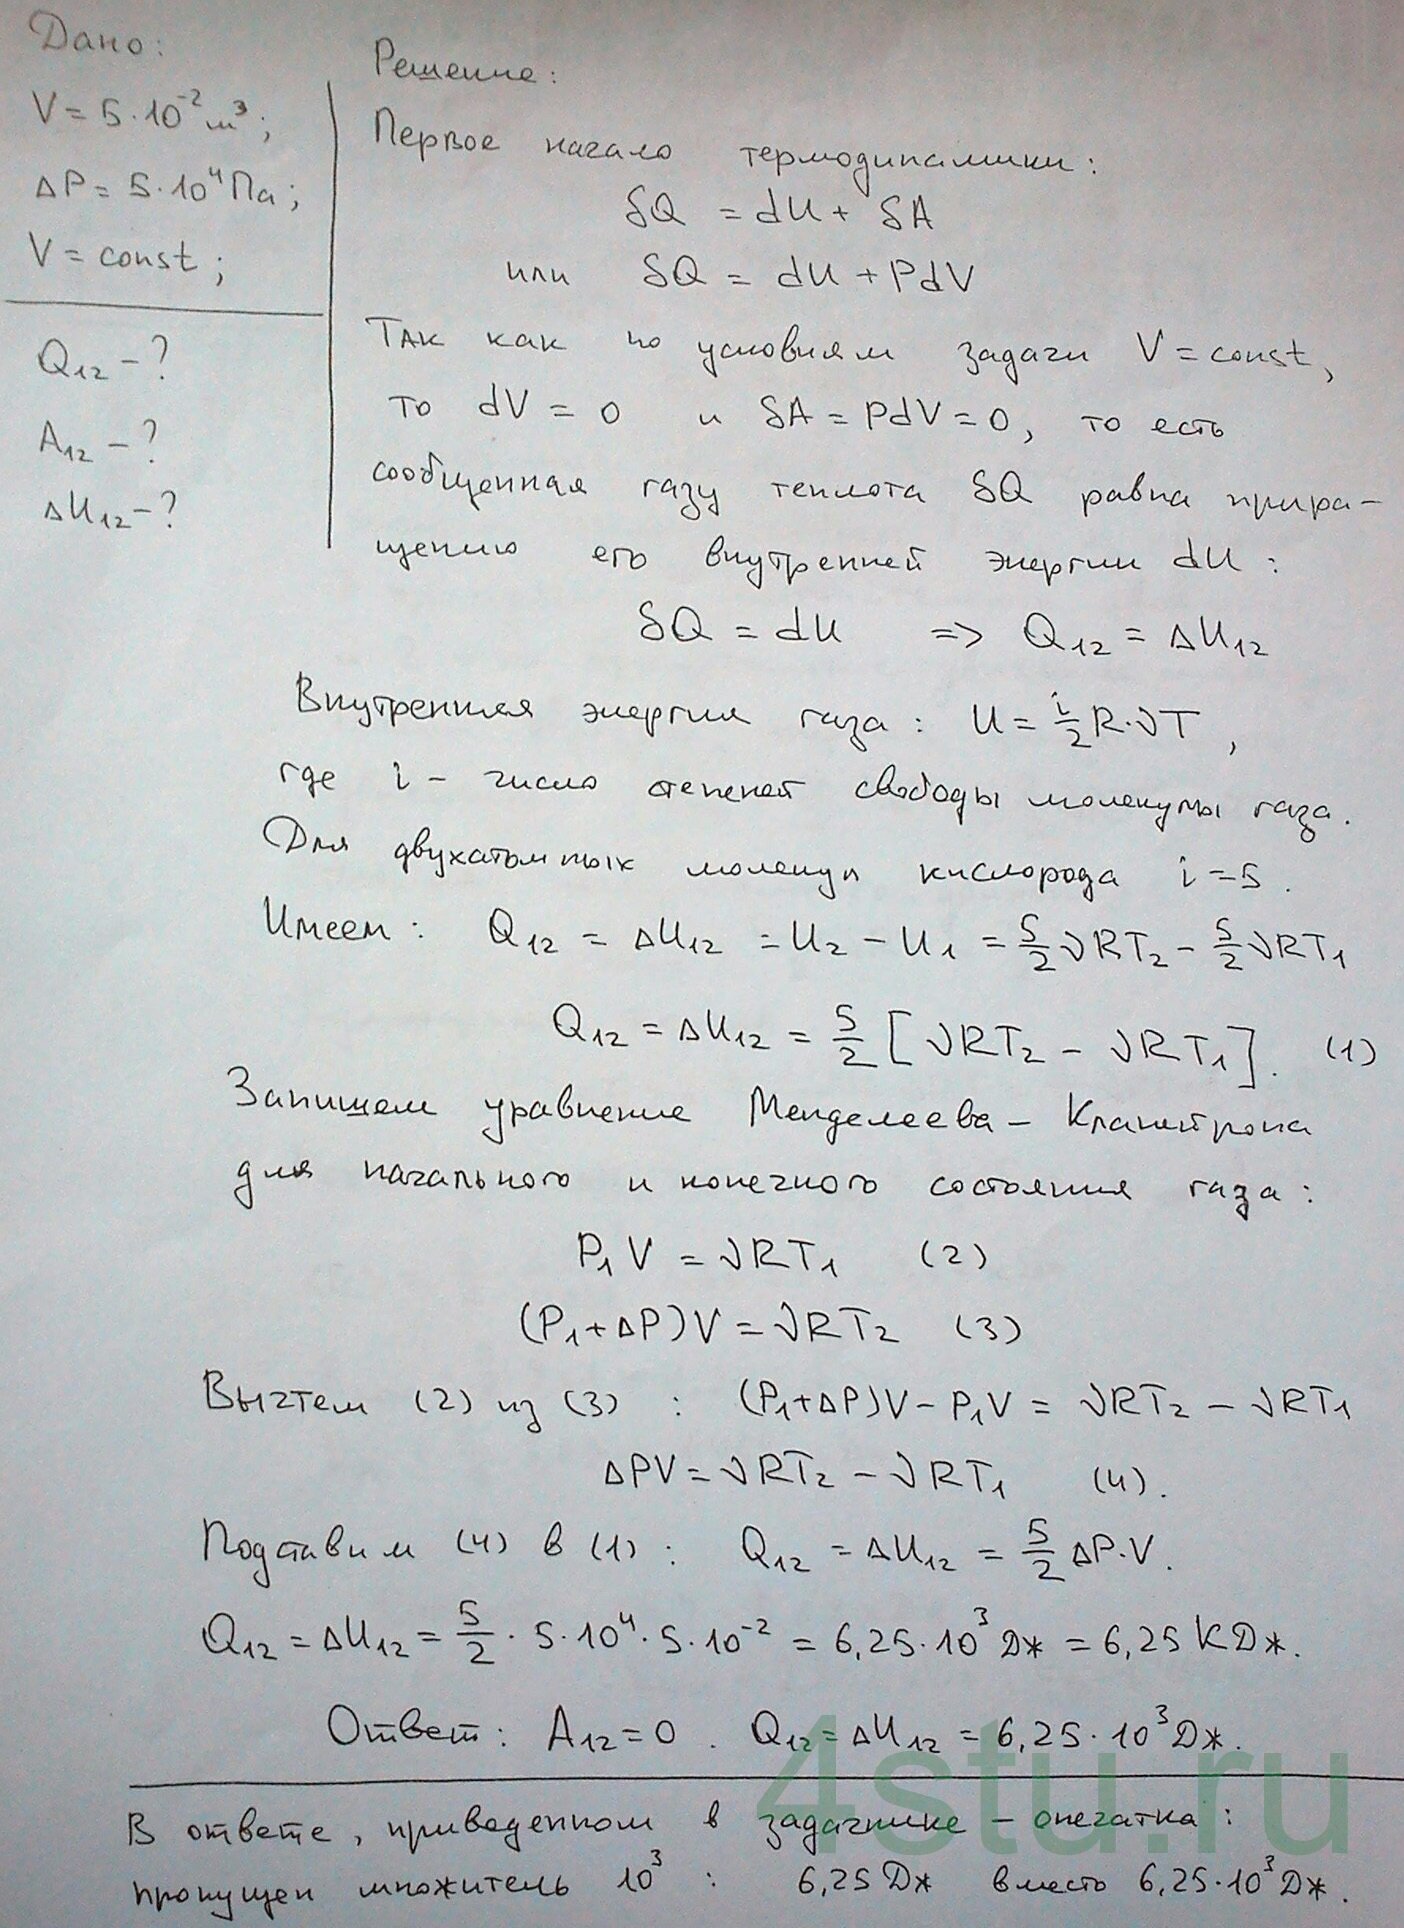 Дано:
V = 5·10⁻² м³;
ΔP = 5·10⁴ Па;
V = const;
Q₁₂ – ?
A₁₂ – ?
ΔU₁₂ – ?
Решение:
Первое начало термодинамики:
δQ = dU + δA
или δQ = dU + PdV
Так как по условиям задачи V = const,
то dV = 0 и δA = PdV = 0, то есть
сообщенная газу теплота δQ равна прира-
щению его внутренней энергии dU:
δQ = dU => Q₁₂ = ΔU₁₂
Внутренняя энергия газа: U = i/2 R·νT,
где i – число степеней свободы молекулы газа.
Для двухатомных молекул кислорода i = 5.
Имеем: Q₁₂ = ΔU₁₂ = U₂ – U₁ = 5/2 νRT₂ – 5/2 νRT₁
Q₁₂ = ΔU₁₂ = 5/2 [νRT₂ – νRT₁]. (1)
Запишем уравнение Менделеева – Клапейрона
для начального и конечного состояния газа:
P₁V = νRT₁ (2)
(P₁+ΔP)V = νRT₂ (3)
Вычтем (2) из (3) : (P₁+ΔP)V – P₁V = νRT₂ – νRT₁
ΔPV = νRT₂ – νRT₁ (4).
Подставим (4) в (1): Q₁₂ = ΔU₁₂ = 5/2 ΔP·V.
Q₁₂ = ΔU₁₂ = 5/2 · 5·10⁴ · 5·10⁻² = 6,25·10³ Дж = 6,25 КДж.
Ответ: A₁₂ = 0. Q₁₂ = ΔU₁₂ = 6,25·10³ Дж.
4stu.ru
В ответе, приведенном в задачнике – опечатка:
пропущен множитель 10³ : 6,25 Дж вместо 6,25·10³ Дж.